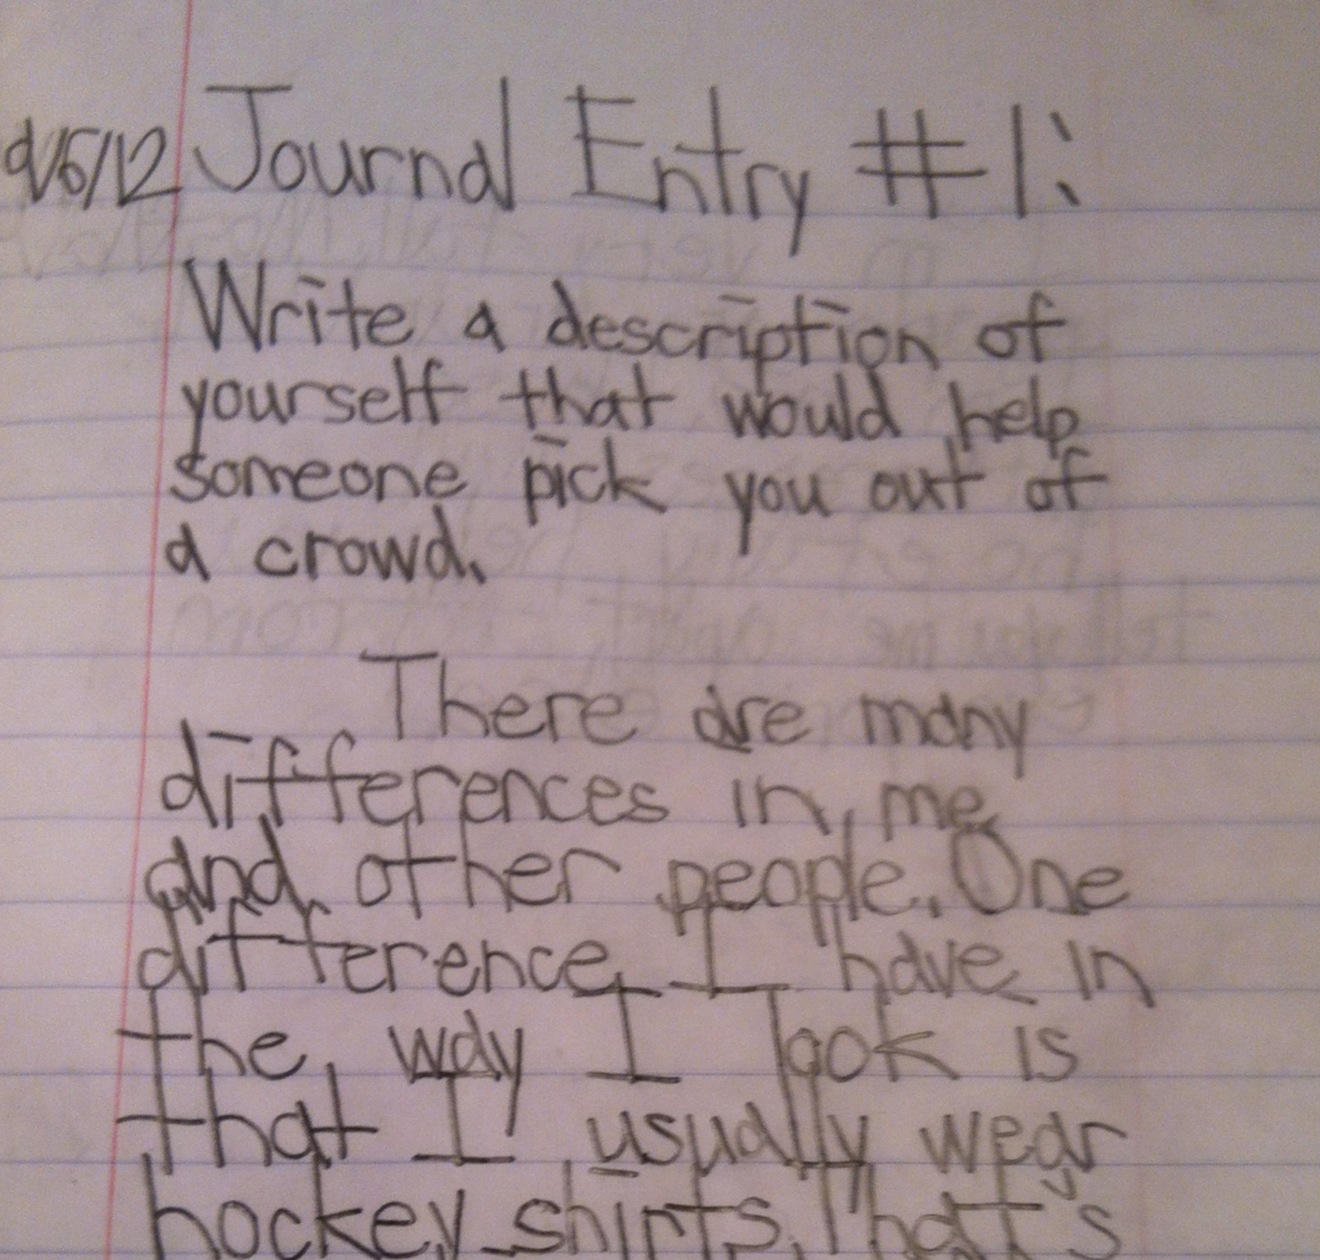 9/5/12 Journal Entry #1:
Write a description of
yourself that would help
someone pick you out of
a crowd.
There are many
differences in me
and other people. One
difference I have in
the way I look is
that I usually wear
hockey shirts. That's